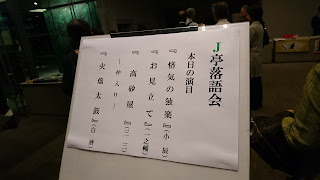 J亭落語会
本日の演目
『悋気の独楽』(小辰)
『お見立て』(一之輔)
―仲入り―
『高砂屋』(三三)
『火焔太鼓』(白酒)